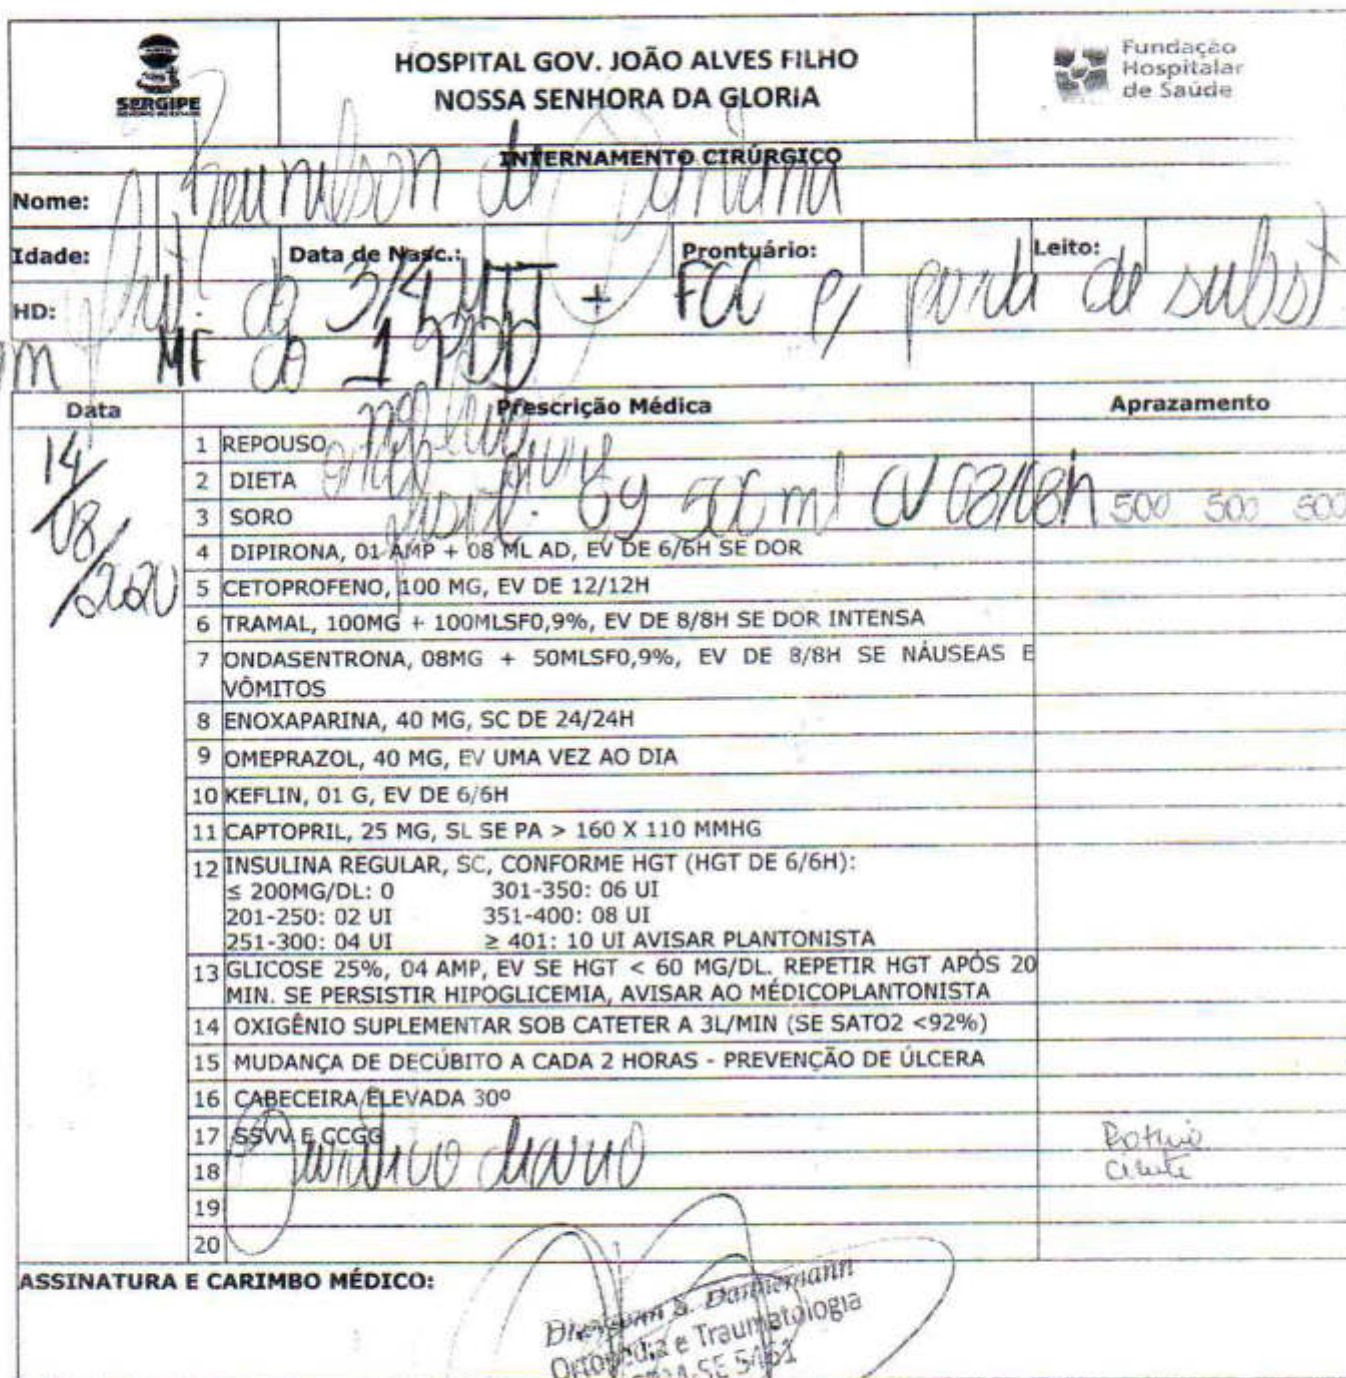 SERGIPE
HOSPITAL GOV. JOÃO ALVES FILHO
NOSSA SENHORA DA GLORIA
Fundação
Hospitalar
de Saúde
INTERNAMENTO CIRÚRGICO
Nome: de
Idade: Data de Nasc.: Prontuário: Leito:
HD: do 3/4 MTT + FCC c/ perda de subst
em MF do 1 PDD
Data Prescrição Médica Aprazamento
14/08/2020
1 REPOUSO
2 DIETA
3 SORO 500 ml EV 500 500 500
4 DIPIRONA, 01 AMP + 08 ML AD, EV DE 6/6H SE DOR
5 CETOPROFENO, 100 MG, EV DE 12/12H
6 TRAMAL, 100MG + 100MLSF0,9%, EV DE 8/8H SE DOR INTENSA
7 ONDASENTRONA, 08MG + 50MLSF0,9%, EV DE 8/8H SE NÁUSEAS E
VÔMITOS
8 ENOXAPARINA, 40 MG, SC DE 24/24H
9 OMEPRAZOL, 40 MG, EV UMA VEZ AO DIA
10 KEFLIN, 01 G, EV DE 6/6H
11 CAPTOPRIL, 25 MG, SL SE PA > 160 X 110 MMHG
12 INSULINA REGULAR, SC, CONFORME HGT (HGT DE 6/6H):
≤ 200MG/DL: 0 301-350: 06 UI
201-250: 02 UI 351-400: 08 UI
251-300: 04 UI ≥ 401: 10 UI AVISAR PLANTONISTA
13 GLICOSE 25%, 04 AMP, EV SE HGT < 60 MG/DL. REPETIR HGT APÓS 20
MIN. SE PERSISTIR HIPOGLICEMIA, AVISAR AO MÉDICOPLANTONISTA
14 OXIGÊNIO SUPLEMENTAR SOB CATETER A 3L/MIN (SE SATO2 <92%)
15 MUDANÇA DE DECÚBITO A CADA 2 HORAS - PREVENÇÃO DE ÚLCERA
16 CABECEIRA ELEVADA 30º
17 SSVV E CCGG Rotina
18 Curativo diário
19
20
ASSINATURA E CARIMBO MÉDICO:
Ortopedia e Traumatologia